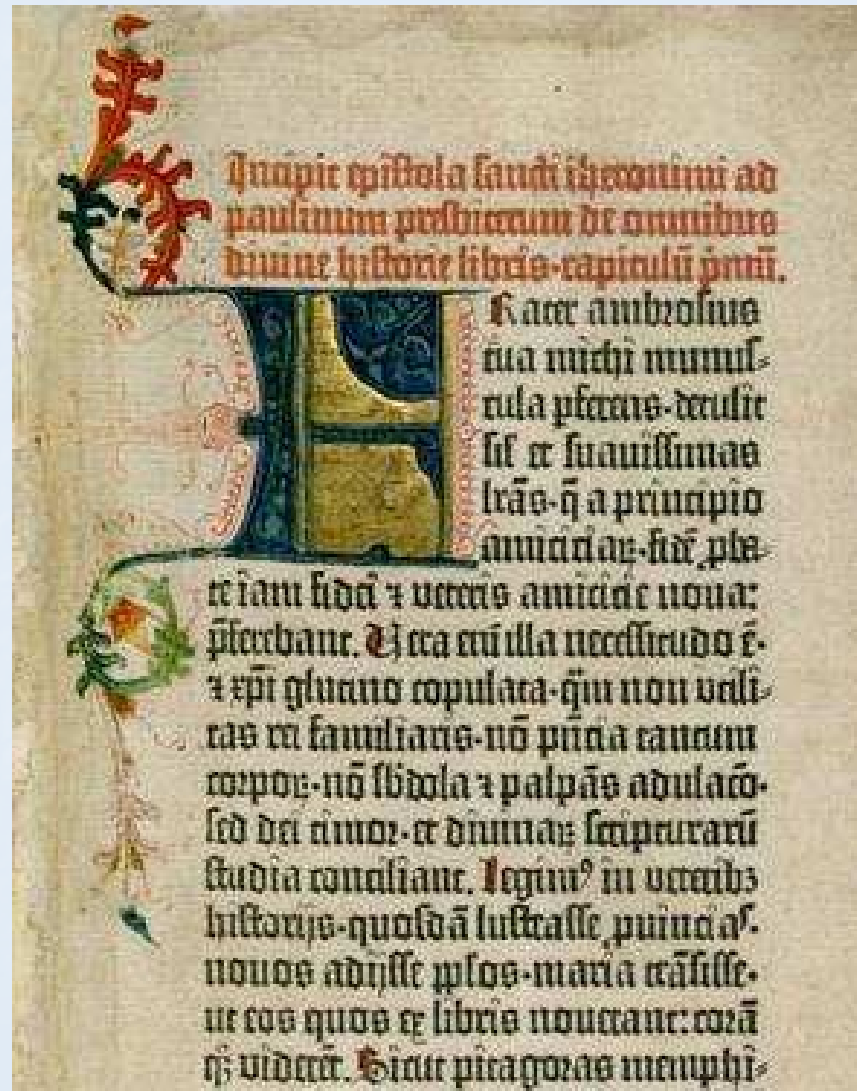 Incipit epistola sancti iheronimi ad
paulinum presbiterum de omnibus
divine historie libris·capitulū p̄mū.
Frater ambrosius
tua michi munus-
cula pferens·detulit
sil̄ et suauissimas
lrās·q̄ a principio
amiciciaꝝ·fidē ꝓba-
te iam fidei ⁊ veteris amicicie noua:
p̄ferebant. Uera eni̅ illa necessitudo ē·
⁊ xp̄i glutino copulata·q̄m non utili-
tas rei familiaris·nō p̄ntia tantum
corpoꝝ·nō sb̄dola ⁊ palpās adulacō·
sed dei timor·et diuinaꝝ scripturarū
studia conciliant. Legimꝰ in veteribꝫ
historijs·quosdā lustrasse ꝓuincias·
nouos adijsse pp̄los·maria trāsisse·
ut eos quos ex libris nouerant: corā
qꝫ viderēt. Sicut pitagoras memphi-